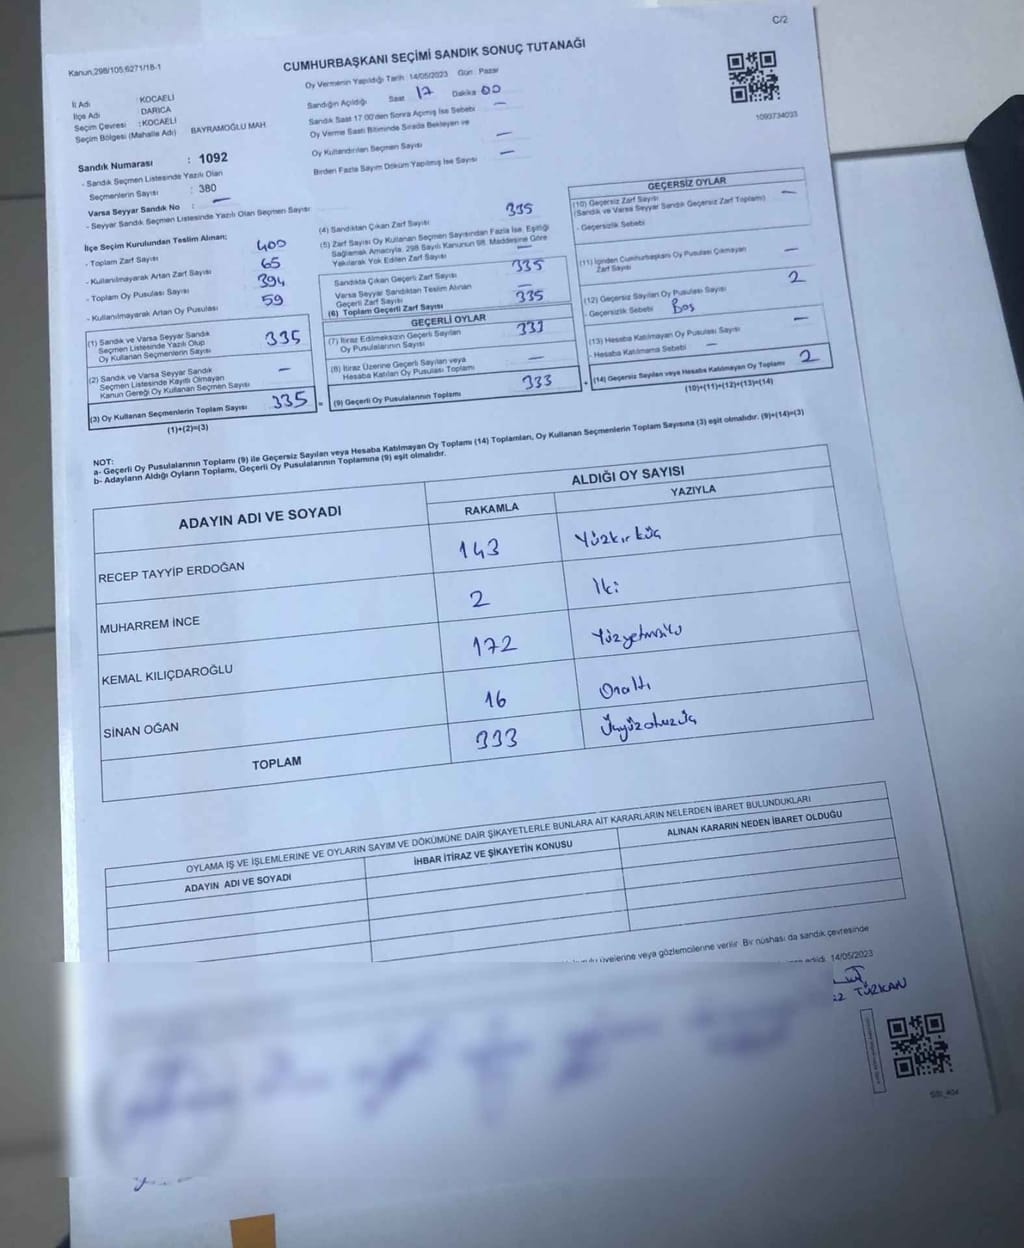 C/2
Kanun,298/105;6271/18-1
CUMHURBAŞKANI SEÇİMİ SANDIK SONUÇ TUTANAĞI
Oy Vermenin Yapıldığı Tarih :14/05/2023 Gün : Pazar
İl Adı : KOCAELİ
İlçe Adı : DARICA
Seçim Çevresi : KOCAELİ
Seçim Bölgesi (Mahalle Adı) BAYRAMOĞLU MAH.
Sandığın Açıldığı Saat 17 Dakika 00
Sandık Saat 17.00'den Sonra Açılmış İse Sebebi —
Oy Verme Saati Bitiminde Sırada Bekleyen ve
Oy Kullandırılan Seçmen Sayısı —
Birden Fazla Sayım Döküm Yapılmış İse Sayısı —
1093734033
Sandık Numarası : 1092
- Sandık Seçmen Listesinde Yazılı Olan
Seçmenlerin Sayısı : 380
Varsa Seyyar Sandık No : —
- Seyyar Sandık Seçmen Listesinde Yazılı Olan Seçmen Sayısı
İlçe Seçim Kurulundan Teslim Alınan;
- Toplam Zarf Sayısı 400
- Kullanılmayarak Artan Zarf Sayısı 65
- Toplam Oy Pusulası Sayısı 394
- Kullanılmayarak Artan Oy Pusulası 59
(1) Sandık ve Varsa Seyyar Sandık
Seçmen Listesinde Yazılı Olup
Oy Kullanan Seçmenlerin Sayısı 335
(2) Sandık ve Varsa Seyyar Sandık
Seçmen Listesinde Kayıtlı Olmayan
Kanun Gereği Oy Kullanan Seçmen Sayısı —
(3) Oy Kullanan Seçmenlerin Toplam Sayısı 335 =
(1)+(2)=(3)
(4) Sandıktan Çıkan Zarf Sayısı 335
(5) Zarf Sayısı Oy Kullanan Seçmen Sayısından Fazla İse, Eşitliği
Sağlamak Amacıyla, 298 Sayılı Kanunun 98. Maddesine Göre
Yakılarak Yok Edilen Zarf Sayısı —
Sandıkta Çıkan Geçerli Zarf Sayısı 335
Varsa Seyyar Sandıktan Teslim Alınan
Geçerli Zarf Sayısı —
(6) Toplam Geçerli Zarf Sayısı 335
GEÇERLİ OYLAR
(7) İtiraz Edilmeksizin Geçerli Sayılan
Oy Pusulalarının Sayısı 333
(8) İtiraz Üzerine Geçerli Sayılan veya
Hesaba Katılan Oy Pusulası Toplamı —
(9) Geçerli Oy Pusulalarının Toplamı 333 +
GEÇERSİZ OYLAR
(10) Geçersiz Zarf Sayısı —
(Sandık ve Varsa Seyyar Sandık Geçersiz Zarf Toplamı)
- Geçersizlik Sebebi
(11) İçinden Cumhurbaşkanı Oy Pusulası Çıkmayan
Zarf Sayısı —
(12) Geçersiz Sayılan Oy Pusulası Sayısı 2
- Geçersizlik Sebebi Boş
(13) Hesaba Katılmayan Oy Pusulası Sayısı —
- Hesaba Katılmama Sebebi —
(14) Geçersiz Sayılan veya Hesaba Katılmayan Oy Toplamı 2
(10)+(11)+(12)+(13)=(14)
NOT:
a- Geçerli Oy Pusulalarının Toplamı (9) ile Geçersiz Sayılan veya Hesaba Katılmayan Oy Toplamı (14) Toplamları, Oy Kullanan Seçmenlerin Toplam Sayısına (3) eşit olmalıdır. (9)+(14)=(3)
b- Adayların Aldığı Oyların Toplamı, Geçerli Oy Pusulalarının Toplamına (9) eşit olmalıdır.
ADAYIN ADI VE SOYADI
ALDIĞI OY SAYISI
RAKAMLA YAZIYLA
RECEP TAYYİP ERDOĞAN 143 Yüzkırküç
MUHARREM İNCE 2 İki
KEMAL KILIÇDAROĞLU 172 Yüzyetmişiki
SİNAN OĞAN 16 Onaltı
TOPLAM 333 Üçyüzotuzüç
OYLAMA İŞ VE İŞLEMLERİNE VE OYLARIN SAYIM VE DÖKÜMÜNE DAİR ŞİKAYETLERLE BUNLARA AİT KARARLARIN NELERDEN İBARET BULUNDUKLARI
ADAYIN ADI VE SOYADI İHBAR İTİRAZ VE ŞİKAYETİN KONUSU ALINAN KARARIN NEDEN İBARET OLDUĞU
üyelerine veya gözlemcilerine verilir. Bir nüshası da sandık çevresinde
edildi. 14/05/2023
TÜRKAN